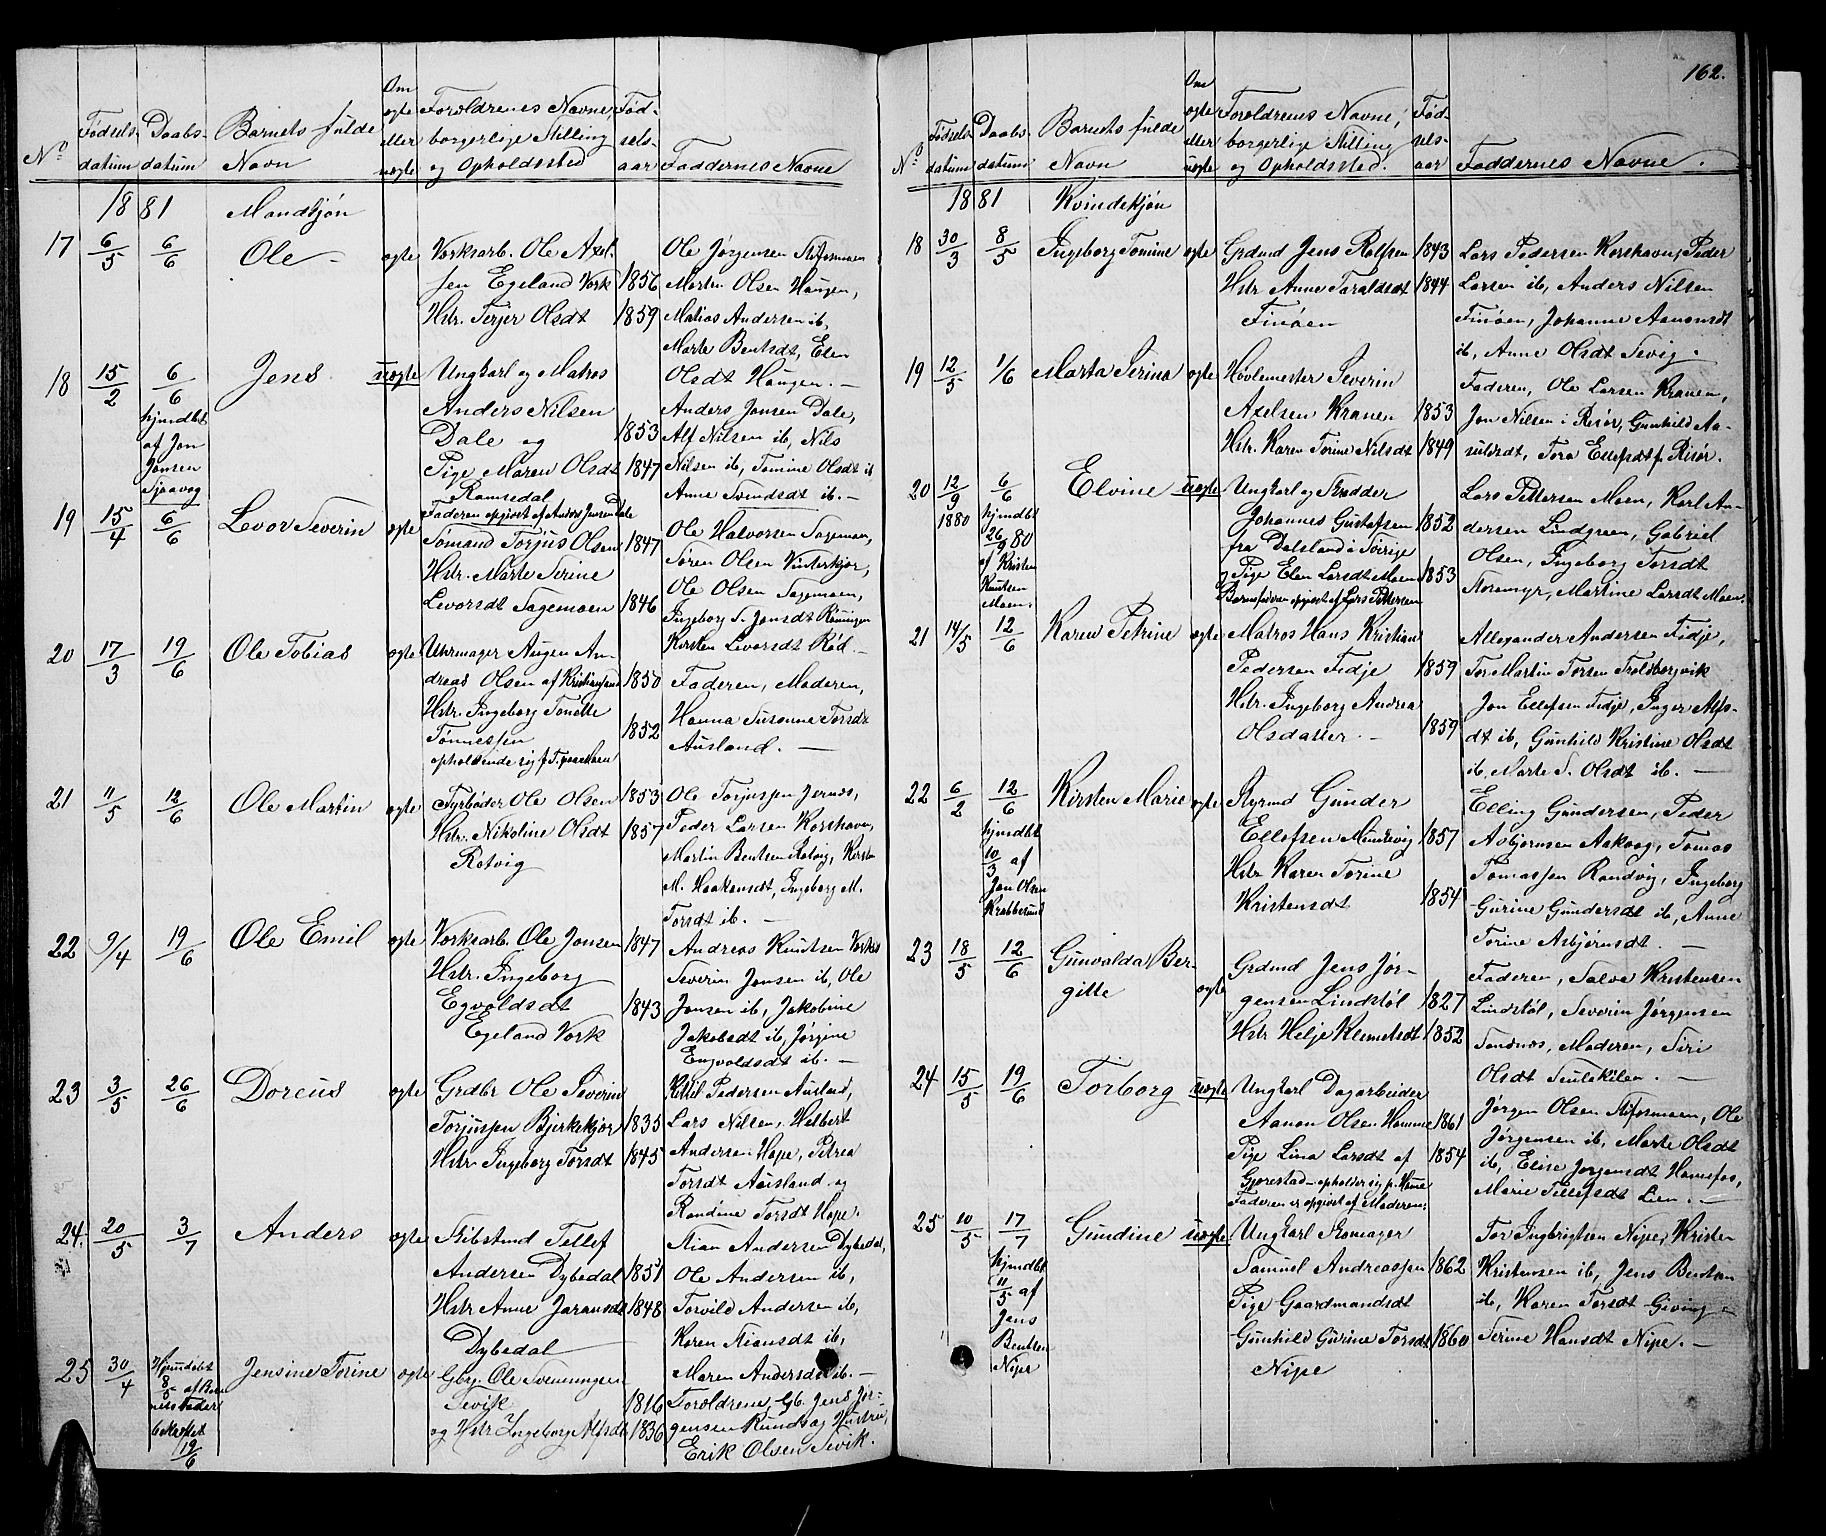 162.
No
Fødsels-
datum
Daabs-
datum
Barnets fulde
Navn
Om
ægte
eller
uægte
Forældrenes Navne,
borgerlige Stilling
og Opholdssted
Fød-
sels-
aar
Faddernes Navne
1881 Mandkjøn
17 6/5 6/6 Ole ægte
Værksarb. Ole Axel-
sen Egeland Værk 1856
Hstr. Terjer Olsdt 1859
Ole Jørgensen
Marten Olsen Haugen,
Matias Andersen ib,
Marte Bentsdt, Elen
Olsdt Haugen. —
18 15/2 6/6 Jens uægte
hjmdbt
af Jon
Jonsen
Sjaavog
Ungkarl og Matros
Anders Nilsen
Dale og 1853
Pige Maren Olsdt 1847
Ramsedal
Faderen opgivet af Anders Jensen Dale
Anders Jonsen Dale,
Alf Nilsen ib, Nils
Nilsen ib, Tomine Olsdt ib
Anne Svendsdt ib. —
19 15/4 6/6 Levor Severin ægte
Sømand Torjus Olsen 1847
Hstr. Marte Serine
Levorsdt Sagemoen 1846
Ole Halvorsen Sagemoen,
Søren Olsen Vinterkjær,
Ole Olsen Sagemoen,
Ingeborg S. Jonsdt Røningen
Kirsten Levorsdt Rød. —
20 17/3 19/6 Ole Tobias ægte
Uhrmager Augen An-
dreas Olsen af Kristiansand 1850
Hstr. Ingeborg Tonette
Tønnessen 1852
opholdende sig
Faderen, Moderen,
Hanna Susanna Torsdt
Ausland. —
21 11/5 12/6 Ole Martin ægte
Fyrbøder Ole Olsen 1853
Hstr. Nikoline Olsdt 1857
Rotvig
Ole Torjussen Jernæs,
Peder Larsen Korshavn,
Martin Bentsen Rotvig, Kirsten
M. Haakensdt, Ingeborg M.
Torsdt ib. —
22 9/4 19/6 Ole Emil ægte
Værksarb. Ole Jonsen 1847
Hstr. Ingeborg
Egvoldsdt 1843
Egeland Værk
Andreas Knudsen Værket
Severin Jonsen ib, Ole
Jonsen ib, Jakobine
Jakobsdt ib, Jørgine
Engvoldsdt ib. —
23 3/5 26/6 Dorcus ægte
Grdbr Ole Severin
Torjussen Bjerkekjær 1835
Hstr. Ingeborg Torsdt 1845
Kittil Pedersen Ausland,
Lars Nilsen, Helbert
Andersen Hope, Petrea
Torsdt Ausland og
Randine Torsdt Hope.
24. 20/5 3/7 Anders ægte
Tellef
Andersen Dybedal 1851
Hstr Anne Jaransdt 1848
Dybedal
Stian Andersen Dybedal,
Ole Andersen ib,
Torvild Andersen ib,
Karen Stiansdt ib,
Maren Andersdt ib. —
25 30/4 Hjemdøbt
8/5 af Bar-
nets Fader
bekræftet
19/6
Jensine Torine ægte
Gbrg. Ole Svenungsen
Sevik 1816
og Hstr Ingeborg Alfsdt 1836
Forældrene, Gb. Jens Jør-
gensen Rund og Hustru,
Erik Olsen Sevik.
No
Fødsels-
datum
Daabs-
datum
Barnets fulde
Navn
Om
ægte
eller
uægte
Forældrenes Navne,
borgerlige Stilling
og Opholdssted.
Fød-
sels-
aar
Faddernes Navne.
1881 Kvindekjøn
18 30/3 8/5 Ingeborg Tomine ægte
Grdmd Jens Rolfsen 1843
Hstr Anne Taraldsdt 1844
Finøen
Lars Pedersen Korshavn, Peder
Larsen ib, Anders Nilsen
Finøen, Johanne Aanonsdt
ib, Anne Olsdt Sevig. —
19 12/5 1/6 Marta Serina ægte
Høvlemester Severin
Axelsen Kranen 1853
Hstr. Karen Torine Nilsdt 1849
Faderen, Ole Larsen Kranen,
Jon Nilsen i Risør, Gunhild Aa-
suldsdt, Tora Ellefsdt f. Risør.
20 12/9 1880 6/6 Elvine uægte
hjmdbt
26/9 80
af Kristen
Knutsen
Moen.
Ungkarl og Skrædder
Johannes Gustafsen 1852
fra Dalsland i Sverige
og Pige Elen Larsdt Moen 1853
Barnefaderen opgivet af Lars Pettersen
Lars Pettersen Moen, Karl An-
dersen Lindgreen, Gabriel
Olsen, Ingeborg Torsdt
Noramyr, Martine Larsdt Moen.
21 14/5 12/6 Karen Petrine ægte
Matros Hans Kristian
Pedersen Fidje 1859
Hstr. Ingeborg Andrea
Olsdatter. — 1859
Allexander Andersen Fidje,
Tor Martin Torsen Troldborgvik
Jon Ellefsen Fidje, Inger Alfs-
dt ib, Gunhild Kristine Olsdt
ib, Marte S. Olsdt ib. —
22 6/2 12/6 Kirsten Marie ægte
hjmdbt
10/3 af
Jon Olsen
Krabbesund
Styrmd Gunder
Ellefsen Munkvig 1857
Hstr Karen Torine
Kristensdt 1854
Elling Gundersen, Peder
Asbjørnsen Aakvog, Tomas
Tomassen Randvig, Ingeborg
Gurine Gundersdt ib, Anne
Torine Asbjørnsdt. —
23 18/5 12/6 Gunvalda Ber-
gitte ægte
Grdmd Jens Jør-
gensen Lindstøl 1827
Hstr Helje Klemetsdt 1852
Faderen, Salve Kristensen
Lindstøl, Severin Jørgensen
Sandnæs, Moderen, Siri
Olsdt Seulekilen. —
24 15/5 19/6 Torborg uægte
Ungkarl Dagarbeider
Aanon Olsen Homme 1861
Pige Lina Larsdt af 1854
Gjerestad — opholder sig p. Homme
Faderen er opgivet af Moderen.
Jørgen Olsen, Ole
Jørgensen ib, Marte Olsdt
ib, Elise Jørgensdt Homsfos,
Marie Tellefsdt Lien. —
25 10/5 17/7 Gundine uægte
hjmdbt
11/5 af
Jens
Bentsen
Nipe
Ungkarl Skomager
Samuel Andreassen 1862
Pige Gaardmandsdt
Gunhild Gurine Torsdt 1860
Nipe
Tor Ingbrigtsen Nipe, Kristen
Kristensen ib, Jens Bentsen
ib, Karen Torsdt Giving
Serine Hansdt Nipe. —